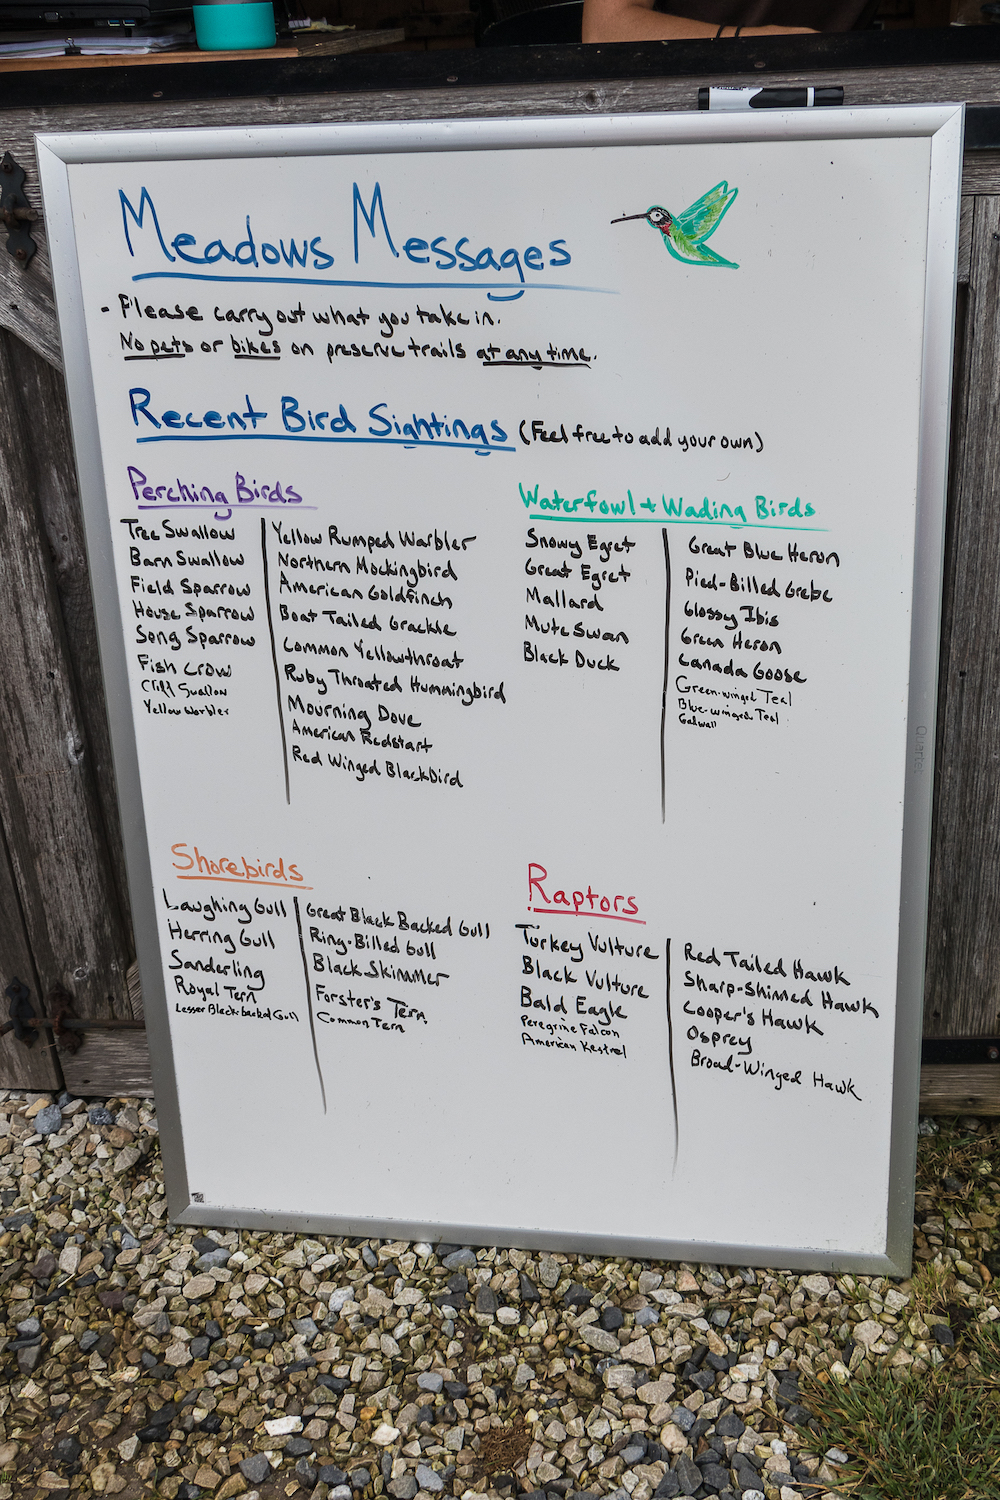 Meadows Messages
- Please carry out what you take in.
No pets or bikes on preserve trails at any time.
Recent Bird Sightings (Feel free to add your own)
Perching Birds
Tree Swallow
Barn Swallow
Field Sparrow
House Sparrow
Song Sparrow
Fish Crow
Cliff Swallow
Yellow Warbler
Yellow Rumped Warbler
Northern Mockingbird
American Goldfinch
Boat Tailed Grackle
Common Yellowthroat
Ruby Throated Hummingbird
Mourning Dove
American Redstart
Red Winged BlackBird
Waterfowl + Wading Birds
Snowy Egret
Great Egret
Mallard
Mute Swan
Black Duck
Great Blue Heron
Pied-Billed Grebe
Glossy Ibis
Green Heron
Canada Goose
Green-winged Teal
Blue-winged Teal
Gadwall
Shorebirds
Laughing Gull
Herring Gull
Sanderling
Royal Tern
Lesser Black-backed Gull
Great Black Backed Gull
Ring-Billed Gull
Black Skimmer
Forster's Tern
Common Tern
Raptors
Turkey Vulture
Black Vulture
Bald Eagle
Peregrine Falcon
American Kestrel
Red Tailed Hawk
Sharp-Shinned Hawk
Cooper's Hawk
Osprey
Broad-Winged Hawk
Quartet